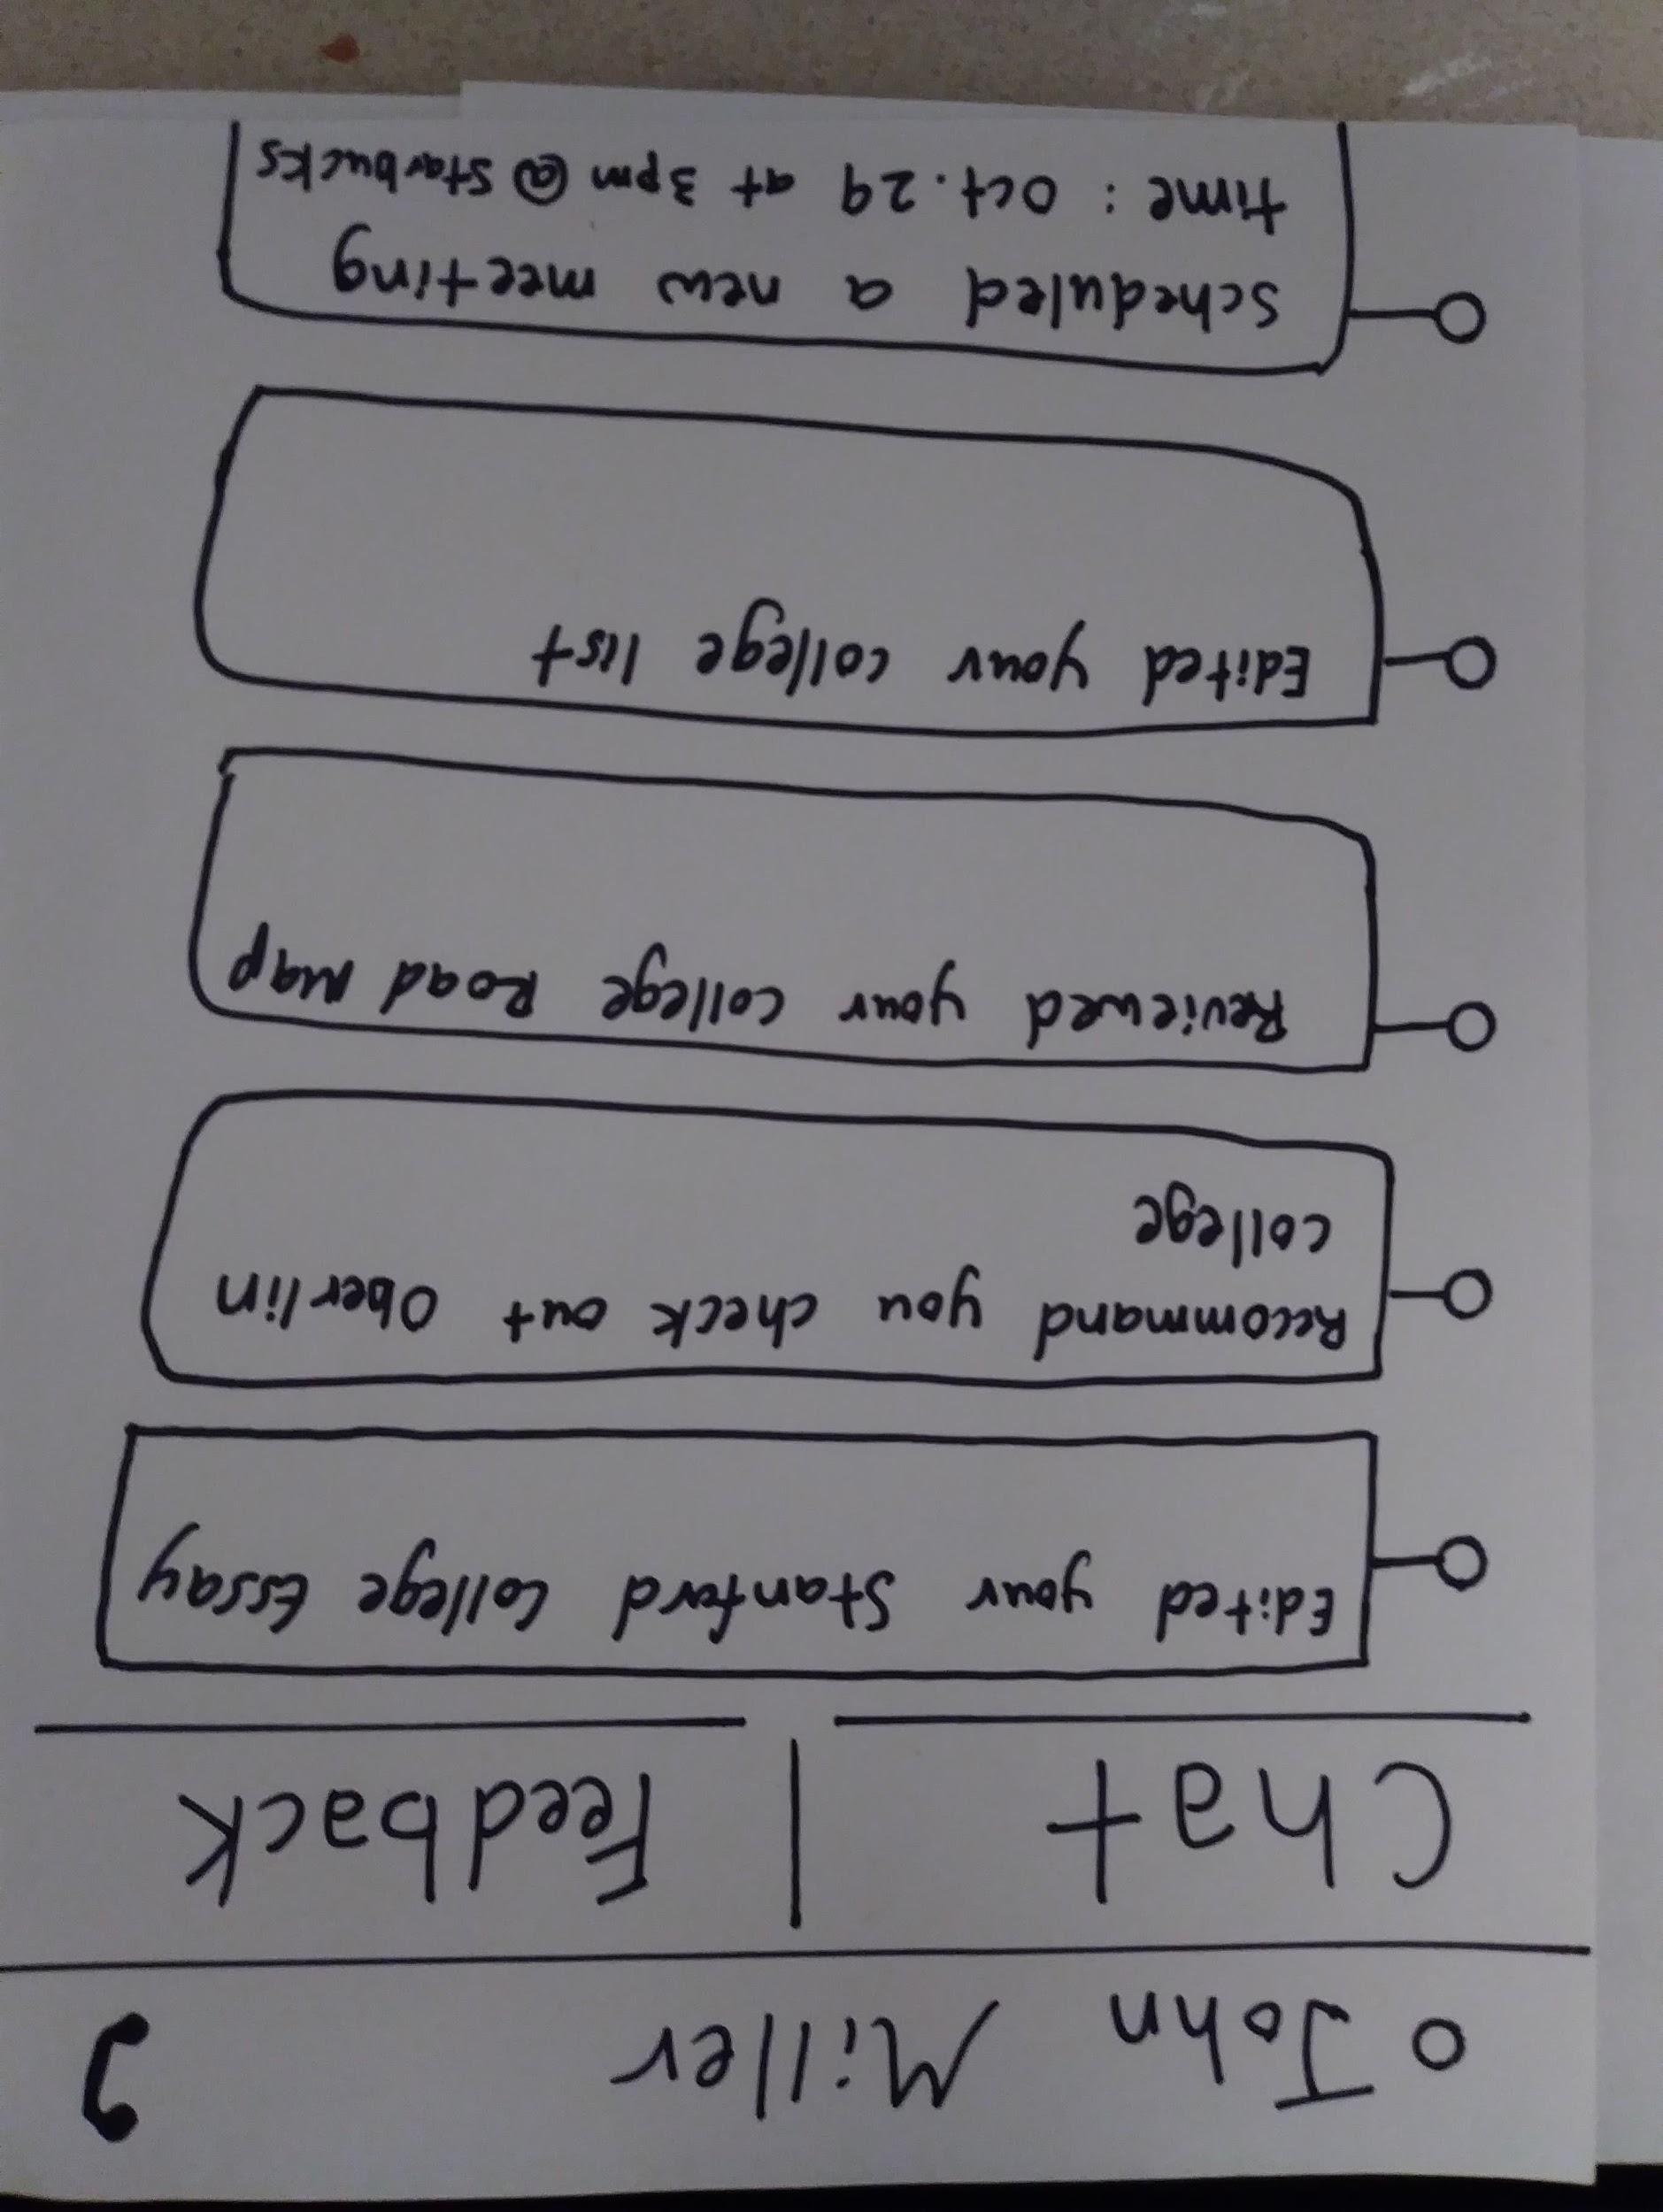 John Miller
Chat | Feedback
Edited your Stanford College Essay
Recommand you check out Oberlin
college
Reviewed your college Road Map
Edited your college list
Scheduled a new meeting
time: Oct. 29 at 3pm @ Starbucks